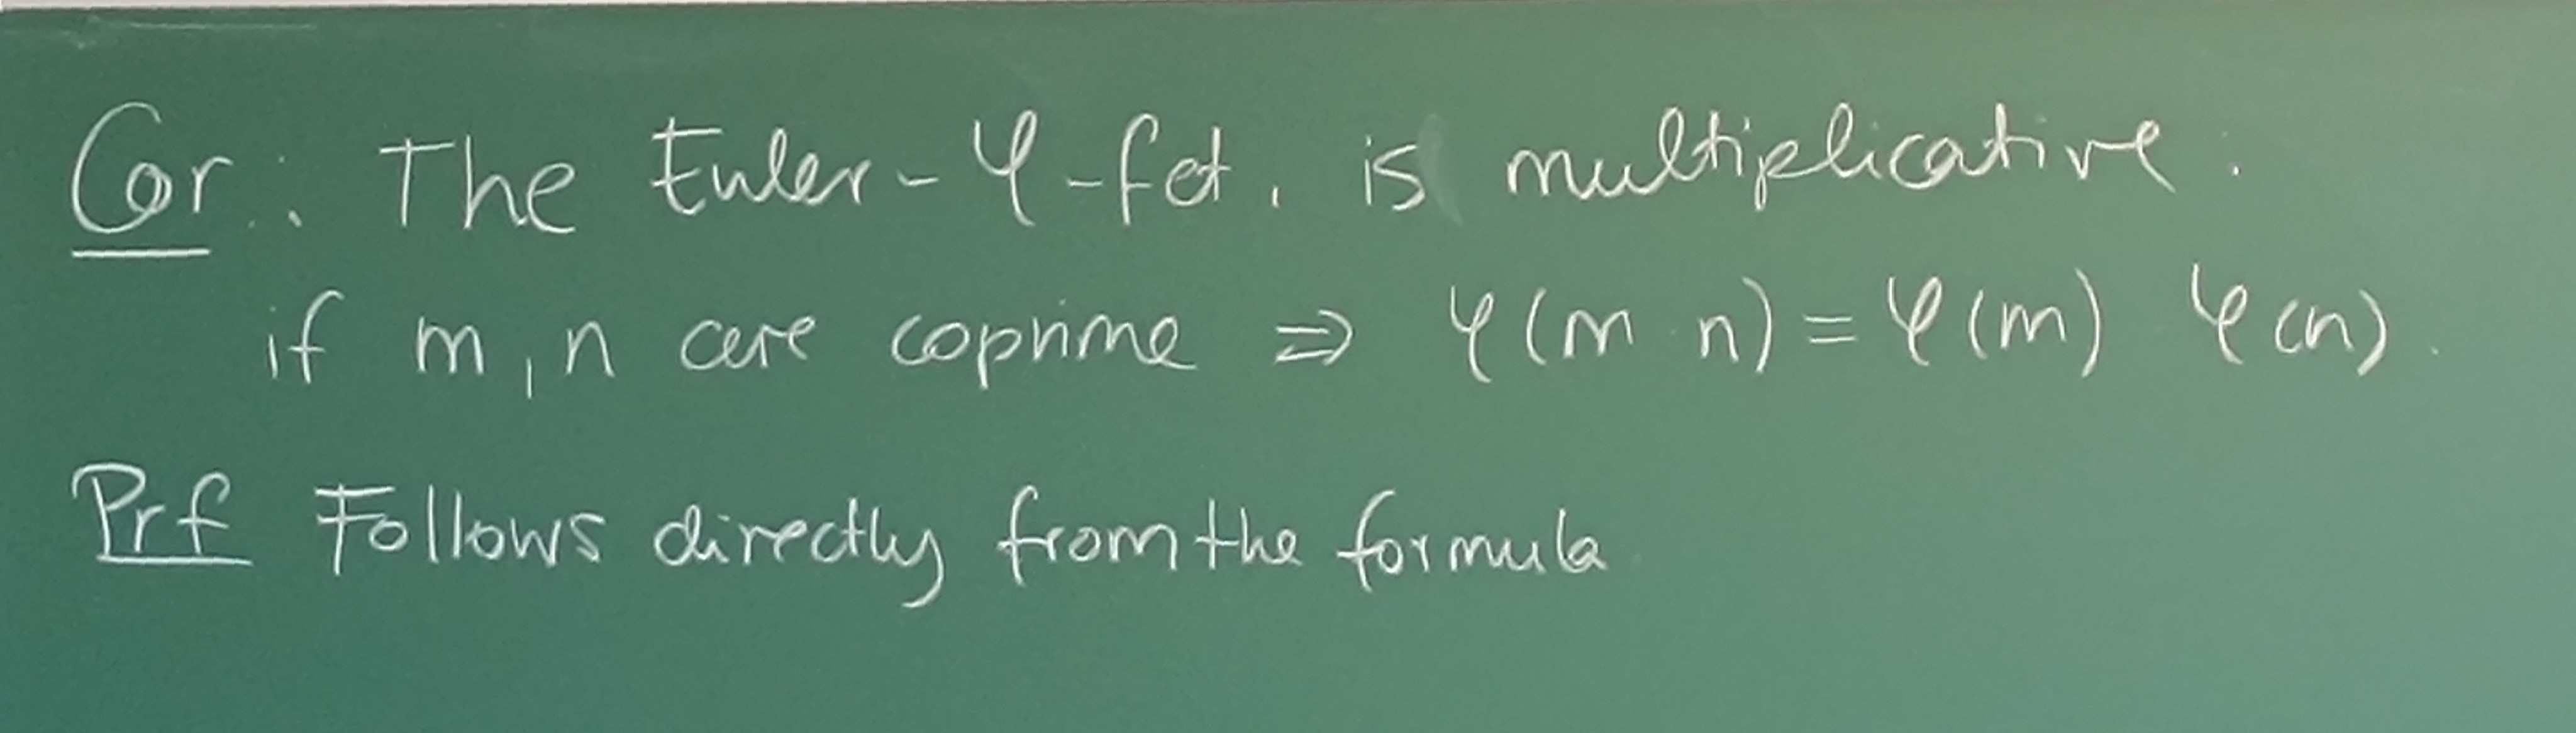 Cor.: The Euler-φ-fct. is multiplicative.
if m, n are coprime ⇒ φ(m n) = φ(m) φ(n).
Prf Follows directly from the formula